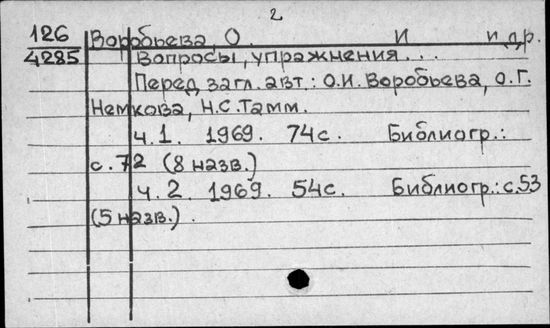 2
126 Воробьева, О. И и др.
4285 Вопросы, упражнения...
Перед загл. авт.: О.И. Воробьева, О.Г.
Немкова, Н.С. Тамм.
ч. 1. 1969. 74с. Библиогр.:
с. 72 (8 назв.)
ч. 2. 1969. 54с. Библиогр.: с. 53
(5 назв.).